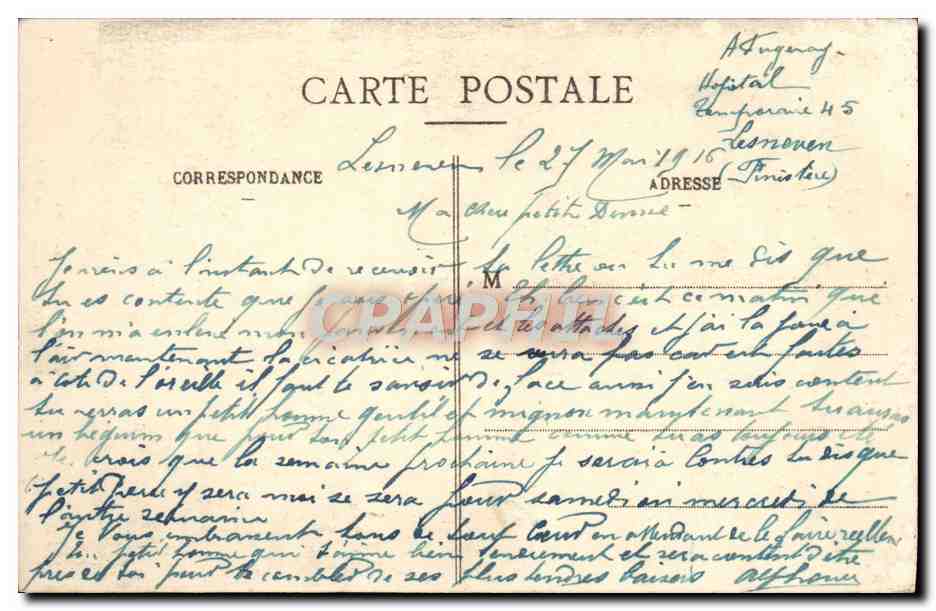 Hopital
Temporaire 45
Lesneven
(Finistère)
CARTE POSTALE
Lesneven le 27 Mai 1916
CORRESPONDANCE
ADRESSE
Ma chere petite
a l'instant de recevoir ta lettre ou tu me dis que
M
tu es contente que Eh bien c'est ce matin que
l'on m'a enlevé mon et les attaches et j'ai la joue à
l'air maintenant la cicatrice ne se vera pas car en
à coté de l'oreille il faut le savoir de face aussi j'en suis content
tu verras un petit homme gentil et mignon maintenant tu auras
un béguin que pour ton petit homme comme tu as toujours été
crois que la semaine prochaine je serai à tu dis que
petit pere y sera moi se sera pour samedi ou mercredi de
l'autre semaine
Je vous embrassent tous de tout cœur en attendant de le faire reellement
ton petit homme qui t'aime bien tendrement et sera content d'etre
pres de toi pour te combler de ses plus tendres baisers Alphonse
CPAPHIL